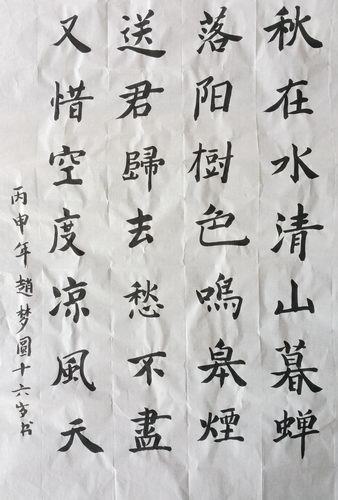 秋在水清山暮蝉
落阳樹色鳴皋煙
送君歸去愁不盡
又惜空度凉風天
丙申年趙梦圓十六岁书